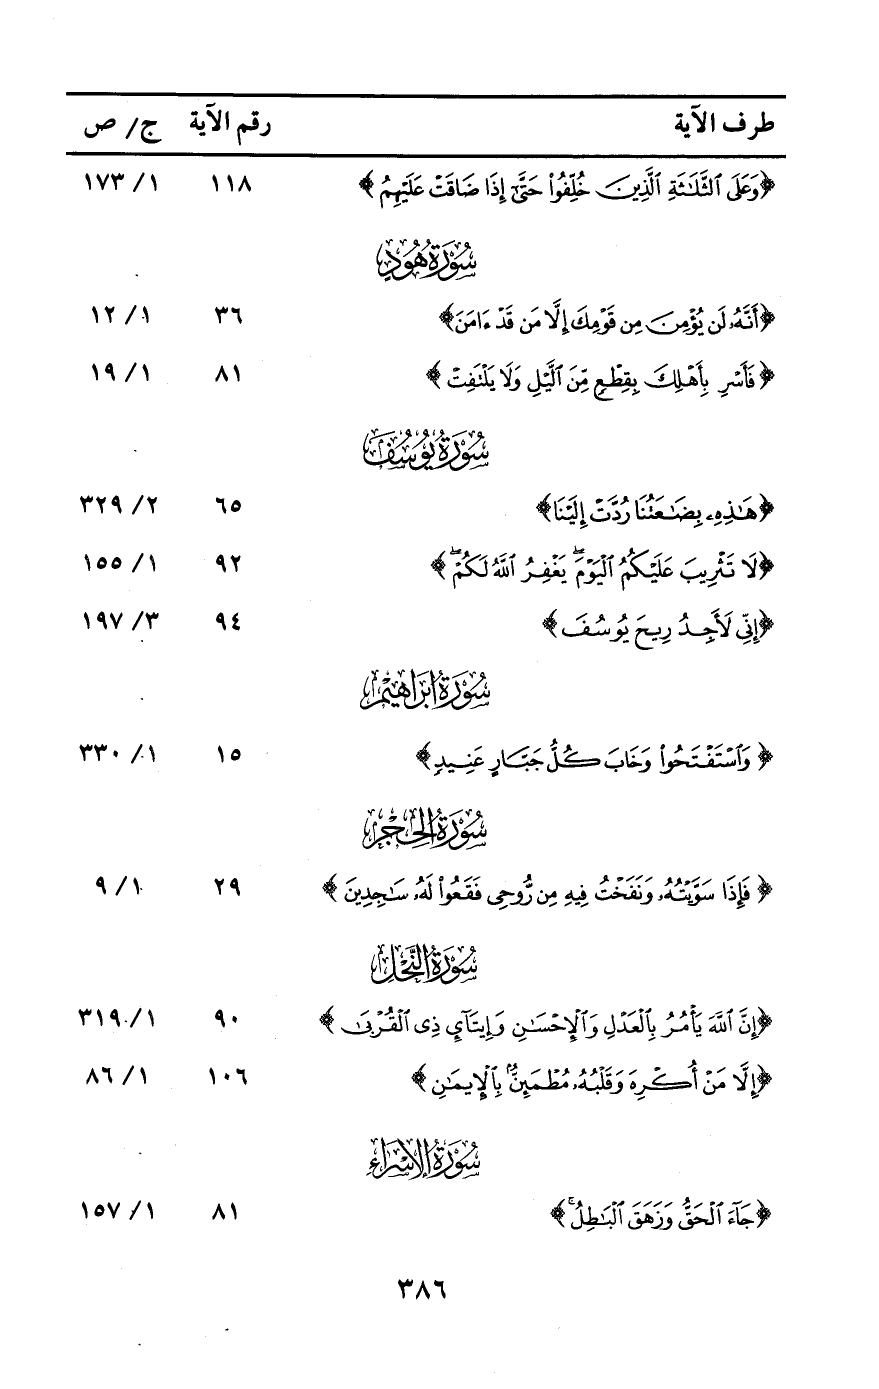 طرف الآية رقم الآية ج/ ص
﴿وَعَلَى ٱلثَّلَـٰثَةِ ٱلَّذِينَ خُلِّفُوا۟ حَتَّىٰٓ إِذَا ضَاقَتْ عَلَيْهِمُ﴾ ١١٨ ١/ ١٧٣
سُورَةُ هُودٍ
﴿أَنَّهُۥ لَن يُؤْمِنَ مِن قَوْمِكَ إِلَّا مَن قَدْ ءَامَنَ﴾ ٣٦ ١/ ١٢
﴿فَأَسْرِ بِأَهْلِكَ بِقِطْعٍ مِّنَ ٱلَّيْلِ وَلَا يَلْتَفِتْ﴾ ٨١ ١/ ١٩
سُورَةُ يُوسُفَ
﴿هَـٰذِهِۦ بِضَـٰعَتُنَا رُدَّتْ إِلَيْنَا﴾ ٦٥ ٢/ ٣٢٩
﴿لَا تَثْرِيبَ عَلَيْكُمُ ٱلْيَوْمَ ۖ يَغْفِرُ ٱللَّهُ لَكُمْ ۖ﴾ ٩٢ ١/ ١٥٥
﴿إِنِّى لَأَجِدُ رِيحَ يُوسُفَ﴾ ٩٤ ٣/ ١٩٧
سُورَةُ إِبْرَاهِيمَ
﴿وَٱسْتَفْتَحُوا۟ وَخَابَ كُلُّ جَبَّارٍ عَنِيدٍ﴾ ١٥ ١/ ٣٣٠
سُورَةُ الحِجْرِ
﴿فَإِذَا سَوَّيْتُهُۥ وَنَفَخْتُ فِيهِ مِن رُّوحِى فَقَعُوا۟ لَهُۥ سَـٰجِدِينَ﴾ ٢٩ ١/ ٩
سُورَةُ النَّحْلِ
﴿إِنَّ ٱللَّهَ يَأْمُرُ بِٱلْعَدْلِ وَٱلْإِحْسَـٰنِ وَإِيتَآئِ ذِى ٱلْقُرْبَىٰ﴾ ٩٠ ١/ ٣١٩
﴿إِلَّا مَنْ أُكْرِهَ وَقَلْبُهُۥ مُطْمَئِنٌّۢ بِٱلْإِيمَـٰنِ﴾ ١٠٦ ١/ ٨٦
سُورَةُ الإِسْرَاءِ
﴿جَآءَ ٱلْحَقُّ وَزَهَقَ ٱلْبَـٰطِلُ ۚ﴾ ٨١ ١/ ١٥٧
٣٨٦